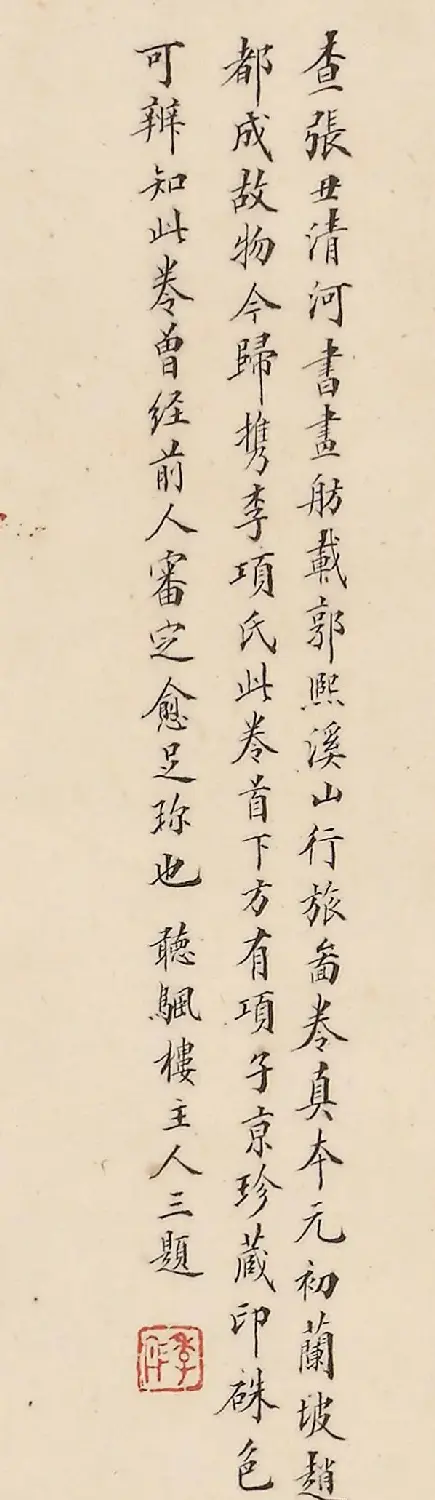 查張丑清河書畫舫載郭熙溪山行旅啚卷真本元初蘭坡趙
都成故物今歸檇李項氏此卷首下方有項子京珍藏印硃色
可辨知此卷曾经前人審定愈足珎也 聽颿樓主人三題
季作